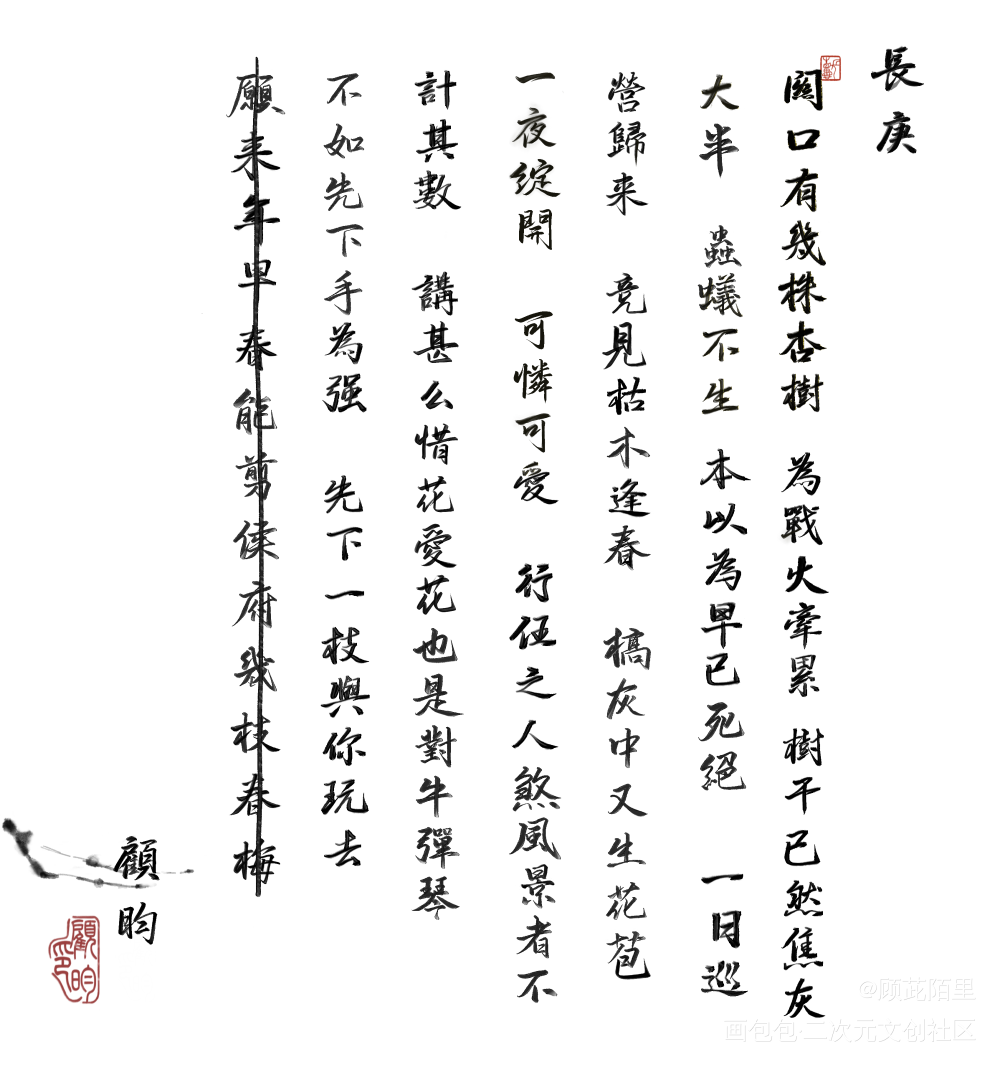 長庚
関口有幾株杏樹 為戰火牽累 樹干已然焦灰
大半 蟲蟻不生 本以為早已死絕 一日巡
營歸来 竞見枯木逢春 槁灰中又生花苞
一夜綻開 可憐可愛 行伍之人煞風景者不
計其數 講甚么惜花愛花也是對牛彈琴
不如先下手為强 先下一枝與你玩去
願来年早春能剪侯府幾枝春梅
顧昀
顧昀印
@顾茈陌里
画包包·二次元文创社区